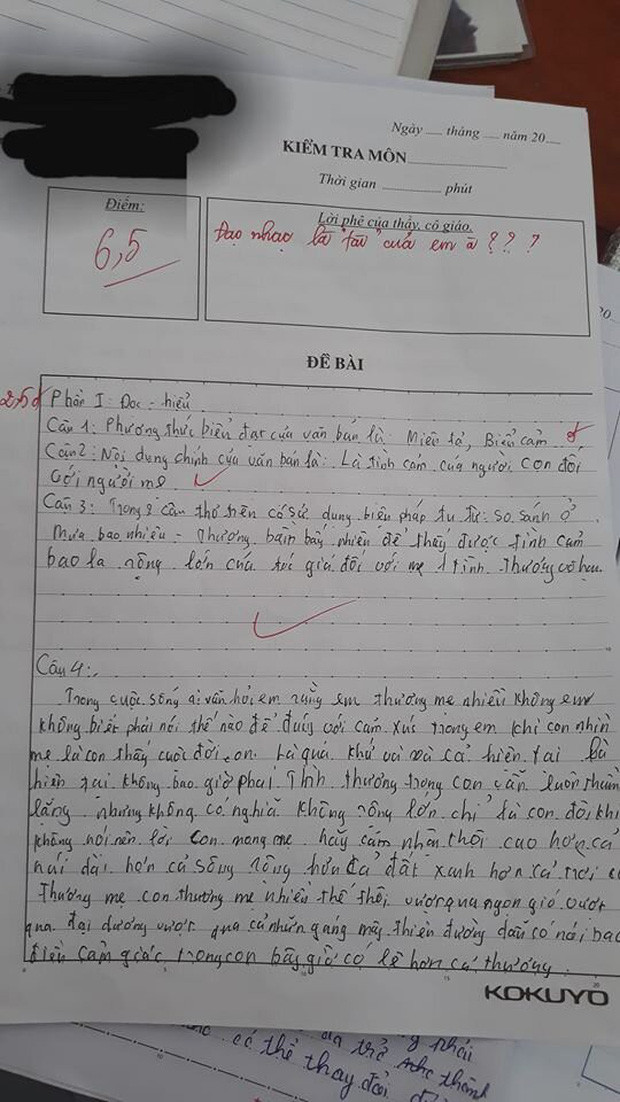 Ngày ___ tháng ___ năm 20___
KIỂM TRA MÔN
Thời gian ___ phút
Điểm:
6,5
Lời phê của thầy, cô giáo.
Đạo nhạc là "tài" của em à ? ? ?
20
ĐỀ BÀI
2,5đ Phần I: Đọc - hiểu
Câu 1: Phương thức biểu đạt của văn bản là: Miêu tả, Biểu cảm
Câu 2: Nội dung chính của văn bản là: Là tình cảm của người con đối
với người mẹ
Câu 3: Trong 2 câu thơ trên có sử dụng biện pháp tu từ: so sánh ở
mưa bao nhiêu - thương bấy nhiêu để thấy được tình cảm
bao la rộng lớn của tác giả đối với mẹ 1 tình thương vô hạn.
Câu 4:
Trong cuộc sống ai vẫn hỏi em rằng em thương mẹ nhiều không em
không biết phải nói thế nào để đúng với cảm xúc trong em khi con nhìn
mẹ là con thấy cuộc đời con. Là quá khứ và và cả hiện tại là
hiện tại không bao giờ phai. Tình thương trong con vẫn luôn thầm
lặng nhưng không có nghĩa không rộng lớn chỉ là con đôi khi
không nói nên lời con mong mẹ hãy cảm nhận thôi cao hơn cả
núi dài hơn cả sông rộng hơn cả đất xanh hơn cả trời
Thương mẹ con thương mẹ nhiều thế thôi vượt qua ngọn gió vượt
qua đại dương vượt qua cả những gáng mây thiên đường dẫu có nói bao
điều cảm giác trong con bây giờ có lẽ hơn cả thương.
KOKUYO
phải
trở thành
có thể thay đổi